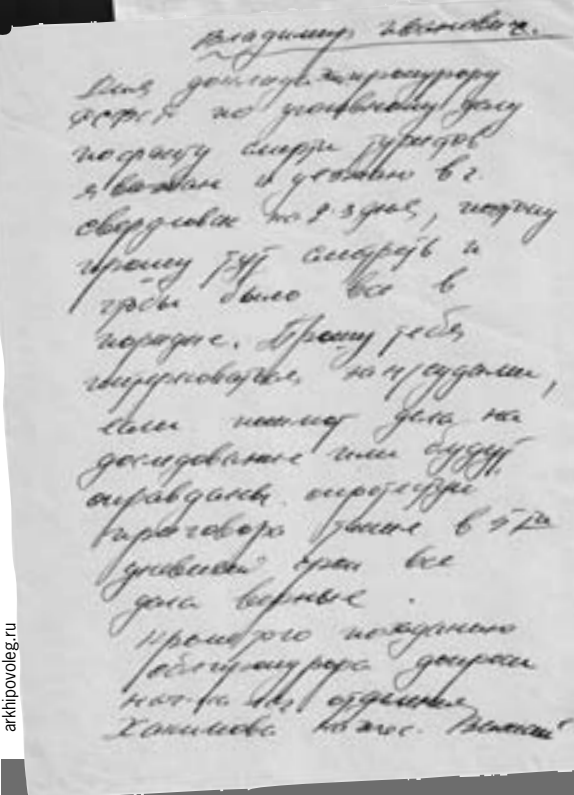 Владимир Иванович.
Для доклада прокурору
РСФСР по уголовному делу
по факту смерти туристов
я вызван и уезжаю в г.
Свердловск на 2-3 дня, поэтому
прошу тут смотреть и
чтобы было все в
порядке. Прошу тебя
интересоваться нарсудами,
если пошлют дела на
доследование или будут
оправданы опротестуй
приговора также в 5ти
дневный срок все
дела верные.
Кроме того по заданию
облпрокурора допроси
нач-ка отделения
Хакимова
arkhipovoleg.ru